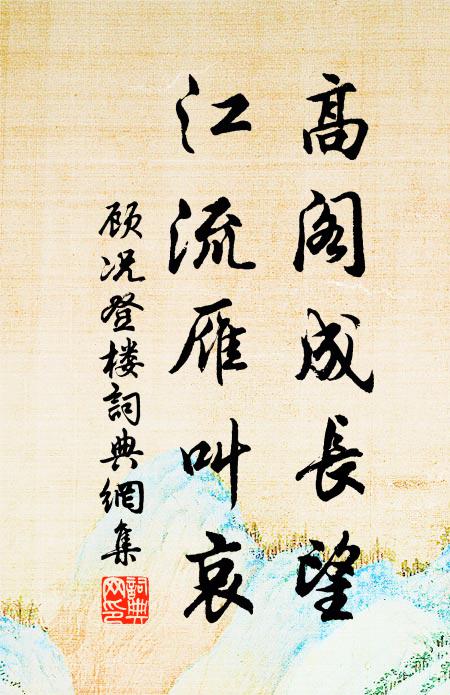 高阁成長望
江流雁叫哀
顾况登楼詞典網集
詞典網印